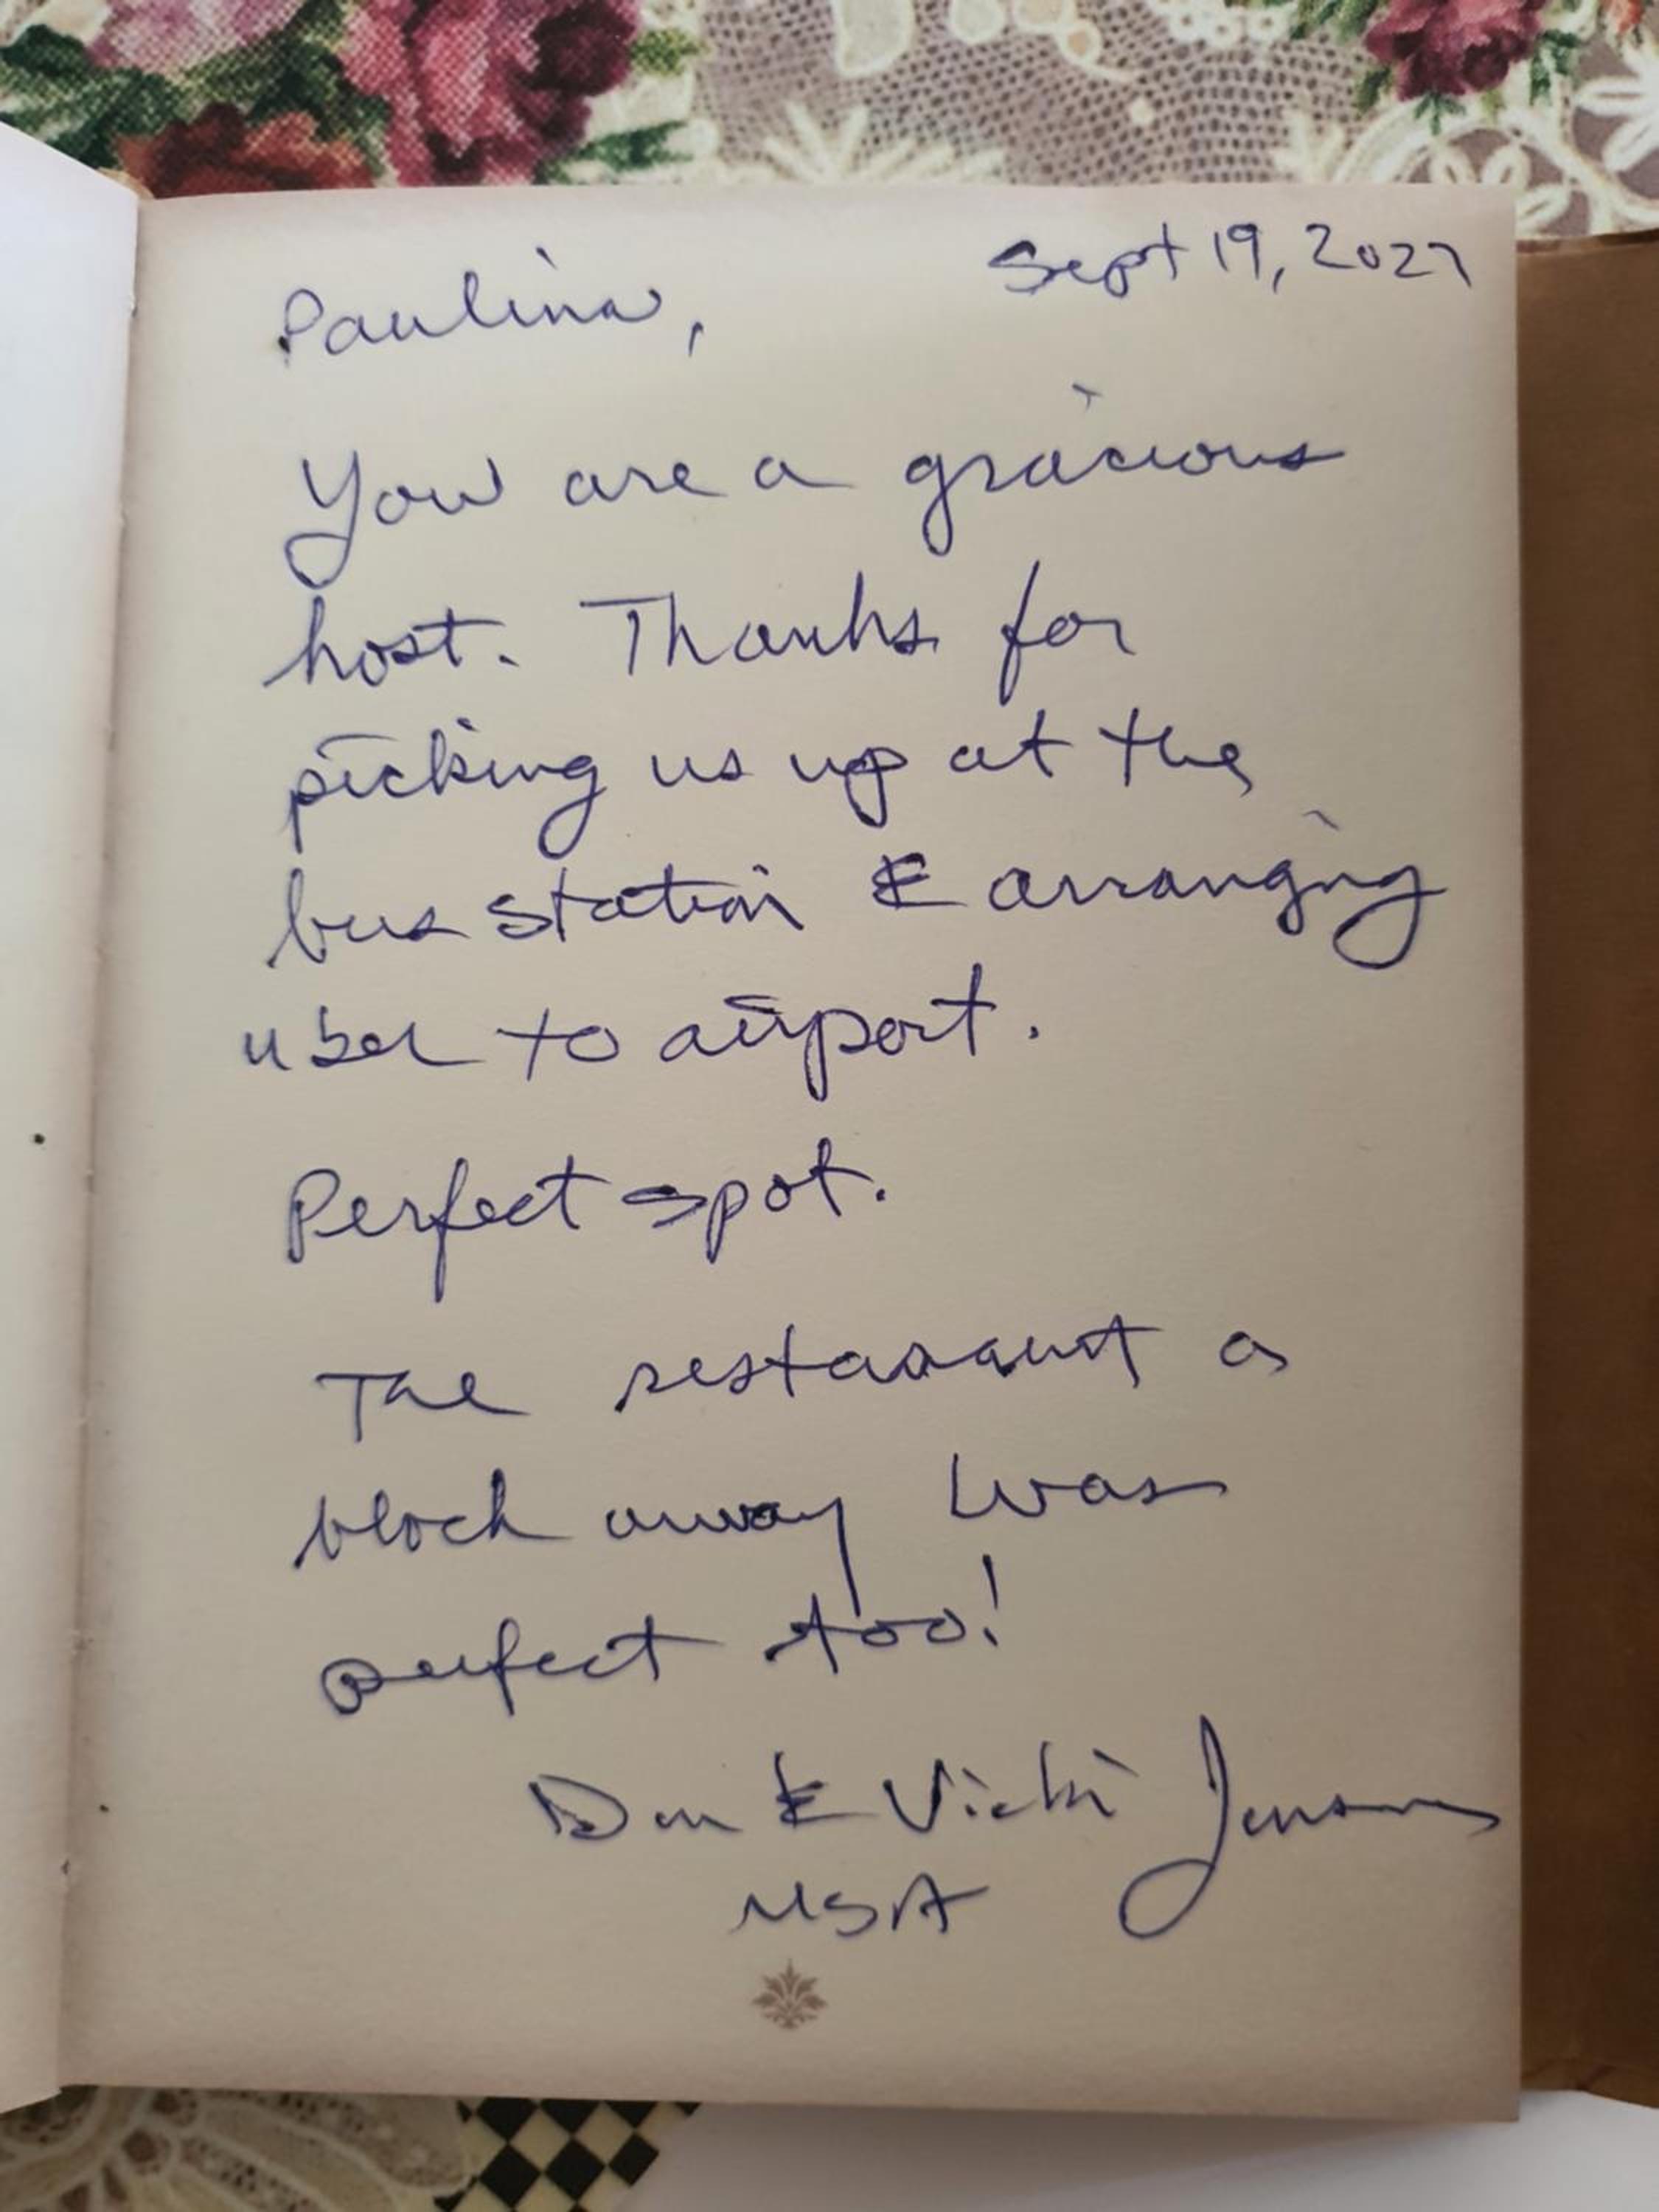 Sept 19, 202
Paulina,
You are a gracious
host. Thanks for
picking us up at the
bus station & arranging
uber to airport.
Perfect spot.
The restaraunt a
block away was
perfect too!
& Vicki
USA